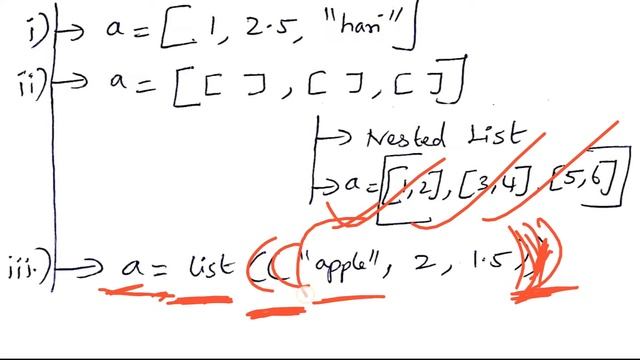 i) → a = [1, 2.5, "hari"]
ii) → a = [[ ], [ ], [ ]]
→ Nested List
→ a = [[1,2], [3,4], [5,6]]
iii.) → a = list (("apple", 2, 1.5))